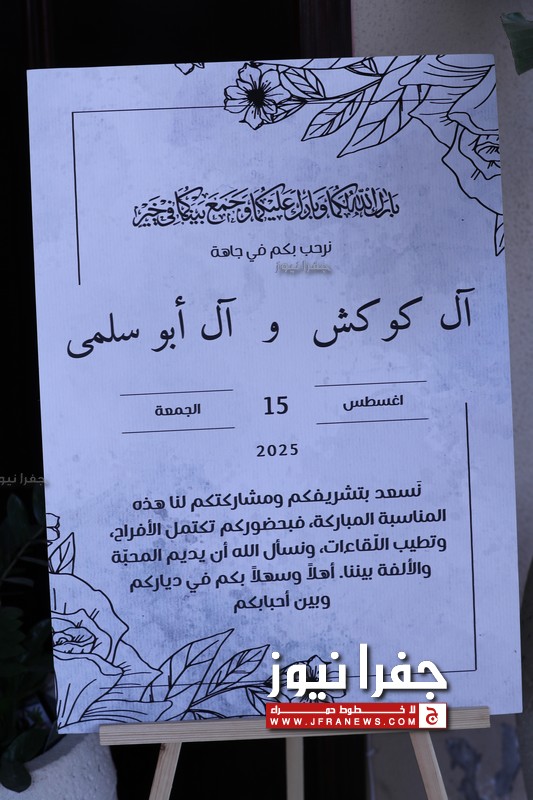 بارك الله لكما وبارك عليكما وجمع بينكما في خير
نرحب بكم في جاهة
جفرا نيوز
آل كوكش و آل أبو سلمى
اغسطس 15 الجمعة
2025
نَسعد بتشريفكم ومشاركتكم لنا هذه
المناسبة المباركة، فبحضوركم تكتمل الأفراح،
وتطيب اللّقاءات، ونسأل الله أن يديم المحبّة
والألفة بيننا. أهلاً وسهلاً بكم في دياركم
وبين أحبابكم
جفرا نيوز
جفرا نيوز
لا خطوط حمراء
WWW.JFRANEWS.COM